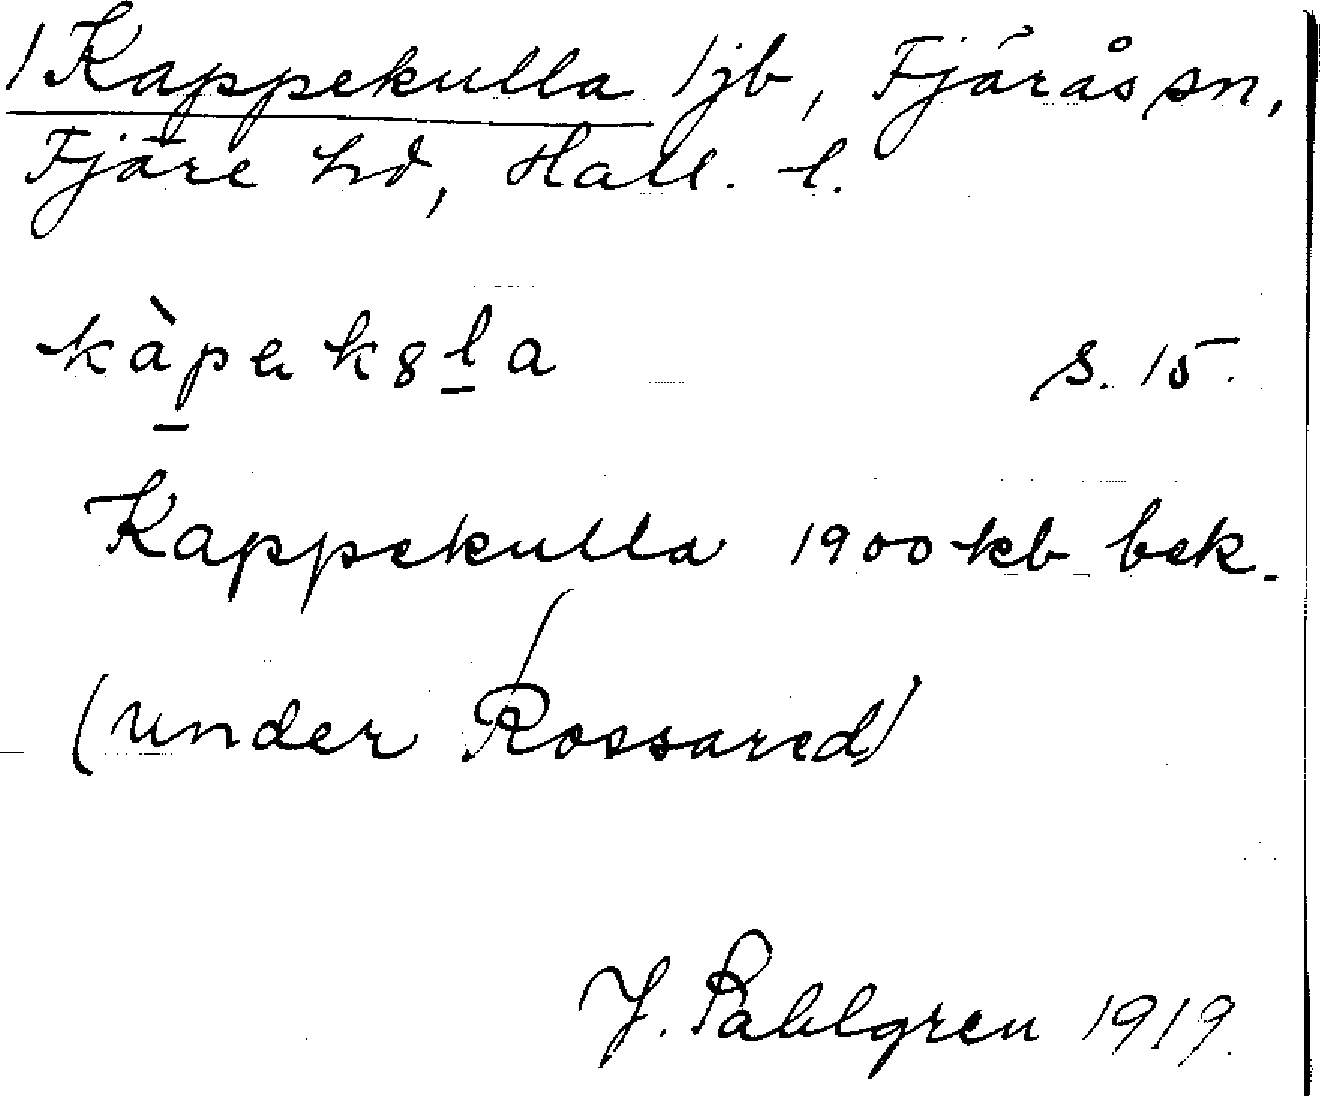 /Kappekulla/ jb, Fjärås sn,
Fjäre hd, Hall. l.
kàpek8la s. 15.
Kappekulla 1900 kb bek.
(under Rossared)
J. Sahlgren 1919.